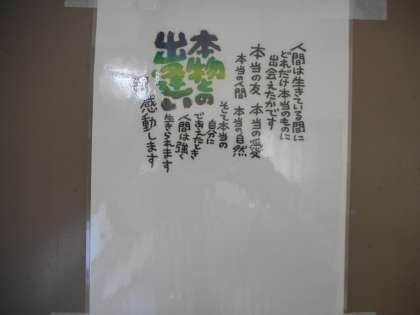 人間は生きている間に
どれだけ本当のものに
出会えたかです
本当の友 本当の愛
本当の人間 本当の自然
そして本当の
自分に
であえたとき
人間は強く
生きられます
感動します
本物との
出逢い